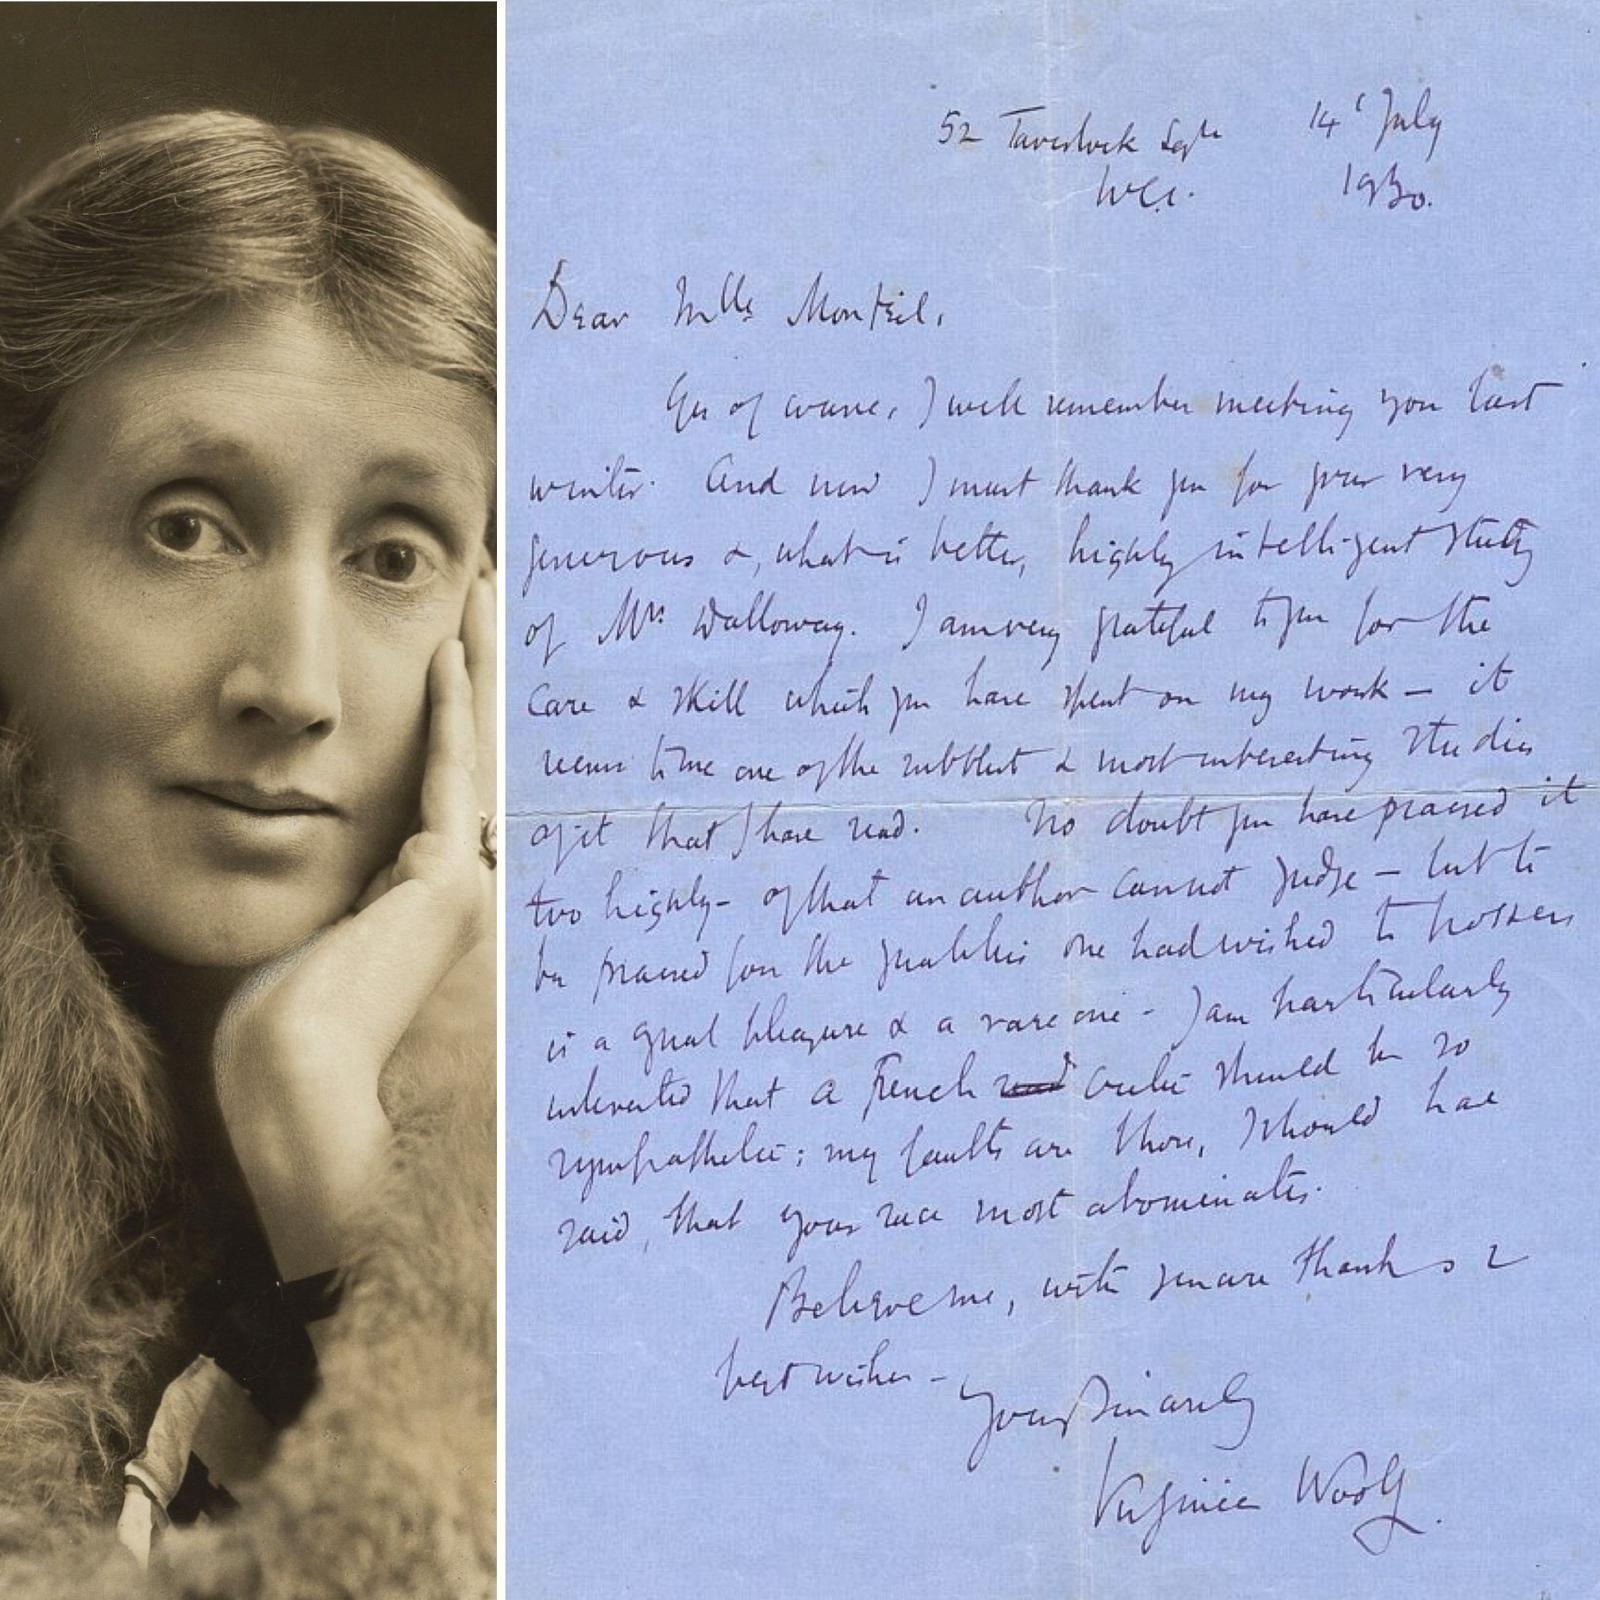 52 Tavistock Sqre 14th July
W.C.1. 1930.
Dear Mlle Monteil,
Yes of course, I well remember meeting you last
winter. And now I must thank you for your very
generous &, what is better, highly intelligent study
of Mrs Dalloway. I am very grateful to you for the
care & skill which you have spent on my work — it
seems to me one of the subtlest & most interesting studies
of it that I have read. No doubt you have praised it
too highly – of that an author cannot judge — but to
be praised for the qualities one had wished to possess
is a great pleasure & a rare one – I am particularly
interested that a French critic should be so
sympathetic; my faults are those, I should have
said, that your race most abominates.
Believe me, with sincere thanks &
best wishes –
Yours sincerely
Virginia Woolf.